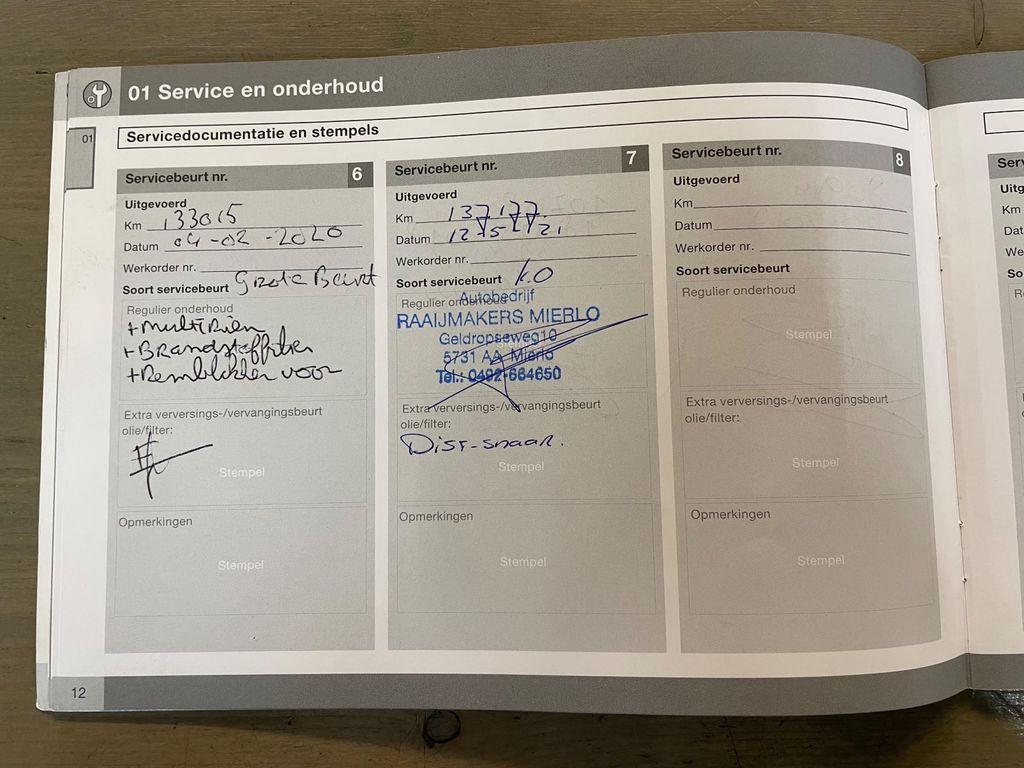 01 Service en onderhoud
01
Servicedocumentatie en stempels
Servicebeurt nr. 6
Uitgevoerd
Km 133015
Datum 04-02-2020
Werkorder nr.
Soort servicebeurt Grote Beurt
Regulier onderhoud
+Multirien
+Brandstoffilter
+Remblokken voor
Extra verversings-/vervangingsbeurt
olie/filter:
Stempel
Opmerkingen
Stempel
Servicebeurt nr. 7
Uitgevoerd
Km 137177
Datum
Werkorder nr.
Soort servicebeurt K.O
Regulier onderhoud
Autobedrijf
RAAIJMAKERS MIERLO
Geldropseweg10
5731 AA Mierlo
Tel.: 0492-664650
Extra verversings-/vervangingsbeurt
olie/filter:
Dist-snaar.
Stempel
Opmerkingen
Stempel
Servicebeurt nr. 8
Uitgevoerd
Km
Datum
Werkorder nr.
Soort servicebeurt
Regulier onderhoud
Stempel
Extra verversings-/vervangingsbeurt
olie/filter:
Stempel
Opmerkingen
Stempel
12